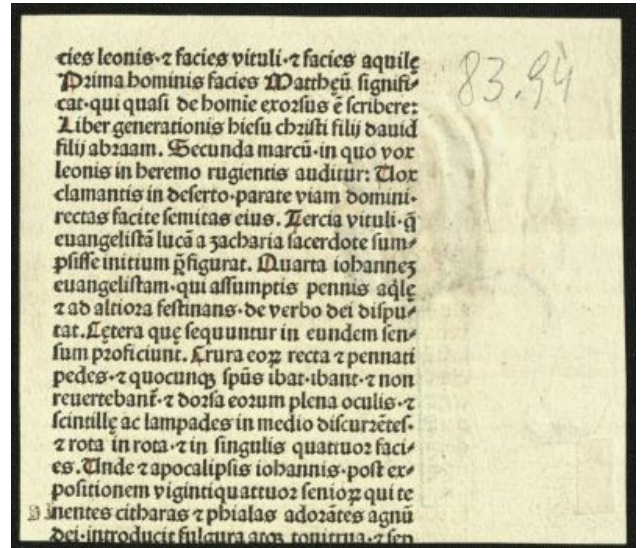 cies leonis·⁊ facies vituli·⁊ facies aquilę
Prima hominis facies Matthęū signifi⸗
cat·qui quasi de homīe exorsus ē scribere:
Liber generationis hiesu christi filij dauid
filij abraam. Secunda marcū·in quo vox
leonis in heremo rugientis auditur: Uox
clamantis in deserto·parate viam domini·
rectas facite semitas eius. Tercia vituli·q̄
euangelistā lucā a zacharia sacerdote sum⸗
psisse initium p̄figurat. Quarta iohannez
euangelistam·qui assumptis pennis aq̇lę
⁊ ad altiora festinans·de verbo dei dispu⸗
tat. Cętera quę sequuntur in eundem sen⸗
sum proficiunt. Crura eoꝝ recta ⁊ pennati
pedes·⁊ quocunqꝫ spūs ibat·ibant·⁊ non
reuertebant̄·⁊ dorsa eorum plena oculis·⁊
scintillę ac lampades in medio discurrētes·
⁊ rota in rota·⁊ in singulis quattuor faci⸗
es. Unde ⁊ apocalipsis iohannis·post ex⸗
positionem vigintiquattuor senioꝝ qui te
nentes citharas ⁊ phialas adorātes agnū
dei·introducit fulgura atqꝫ tonitrua·⁊ sep
83.94